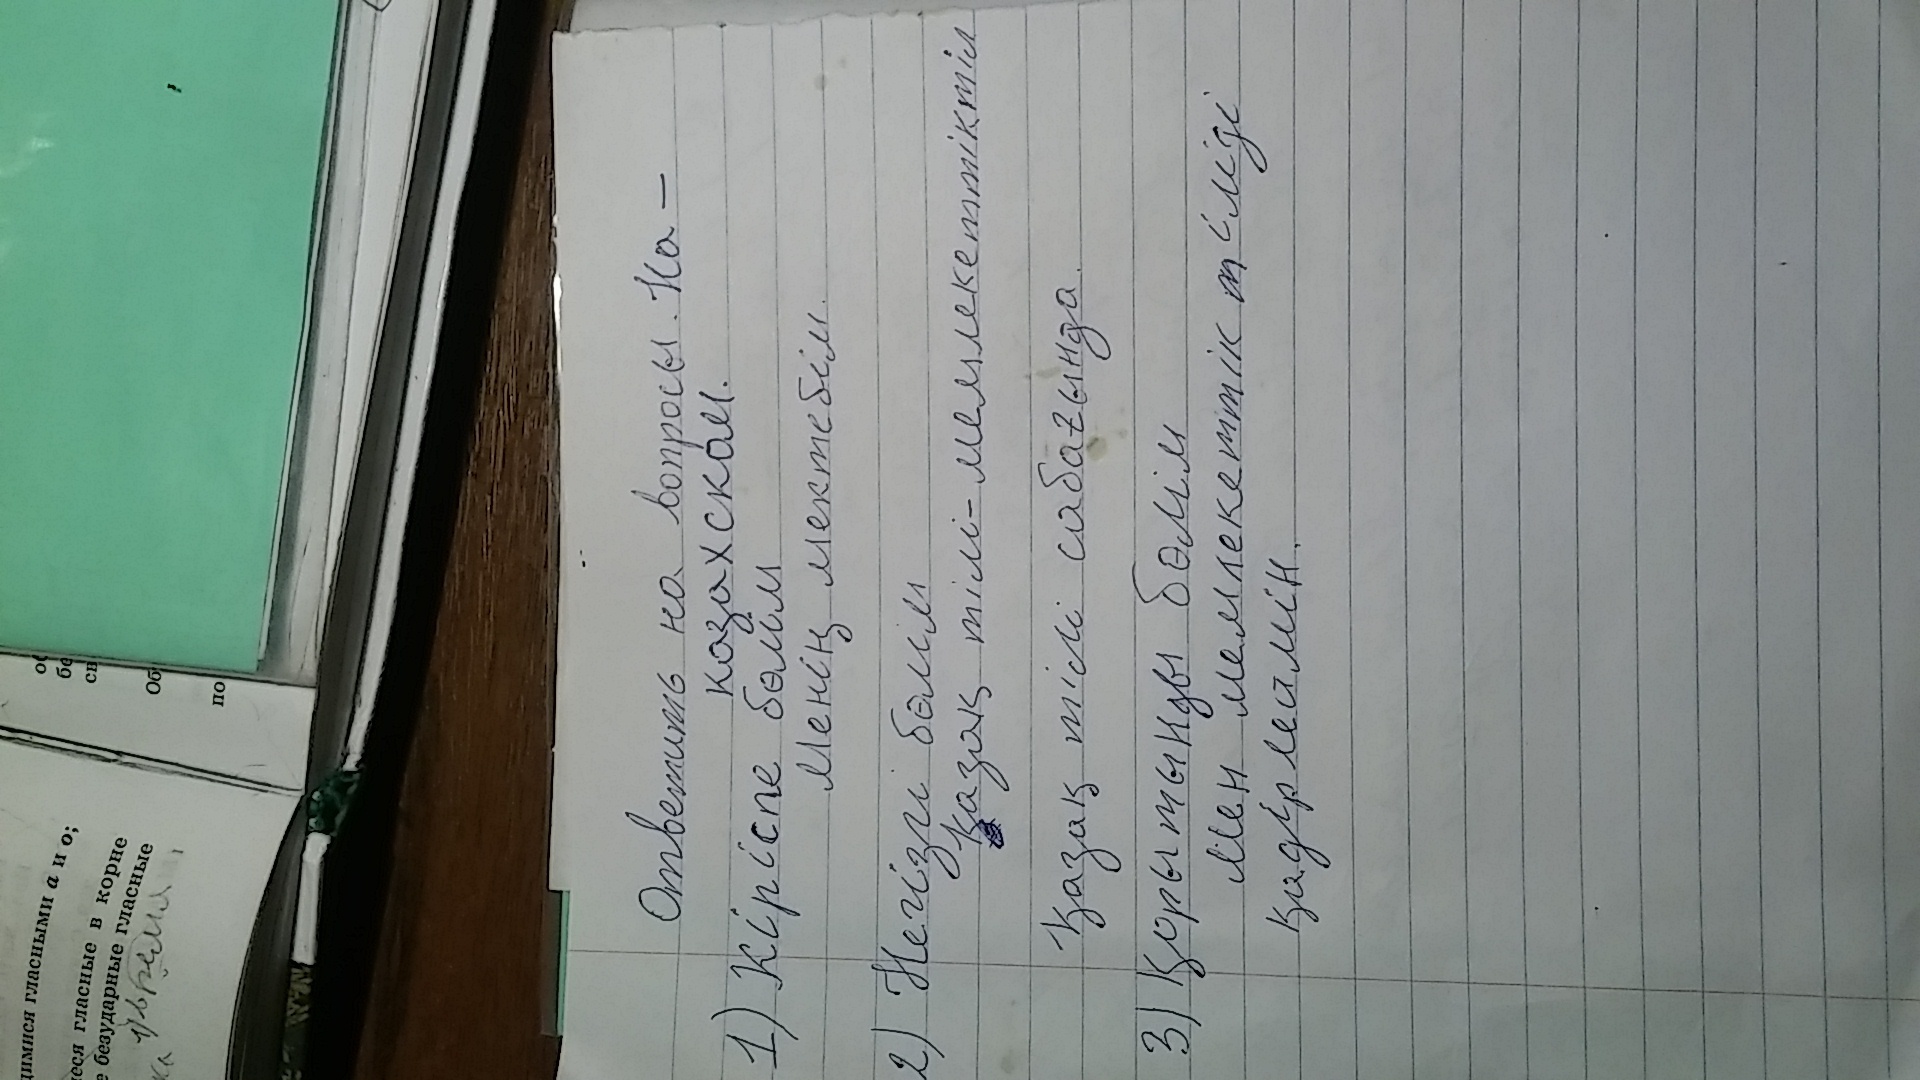 Ответить на вопросы. На -
казахском.
1) Кіріспе бөлім
Менің мектебім.
2) Негізгі бөлім
Қазақ тілі - мемлекеттіктіл
Қазақ тілі сабағында.
3) Қорытынды бөлім
Мен мемлекеттік тілді
қадірлеймін.
щимися гласными а и о;
еся гласные в корне
е безударные гласные
об
бе
св
Об
по